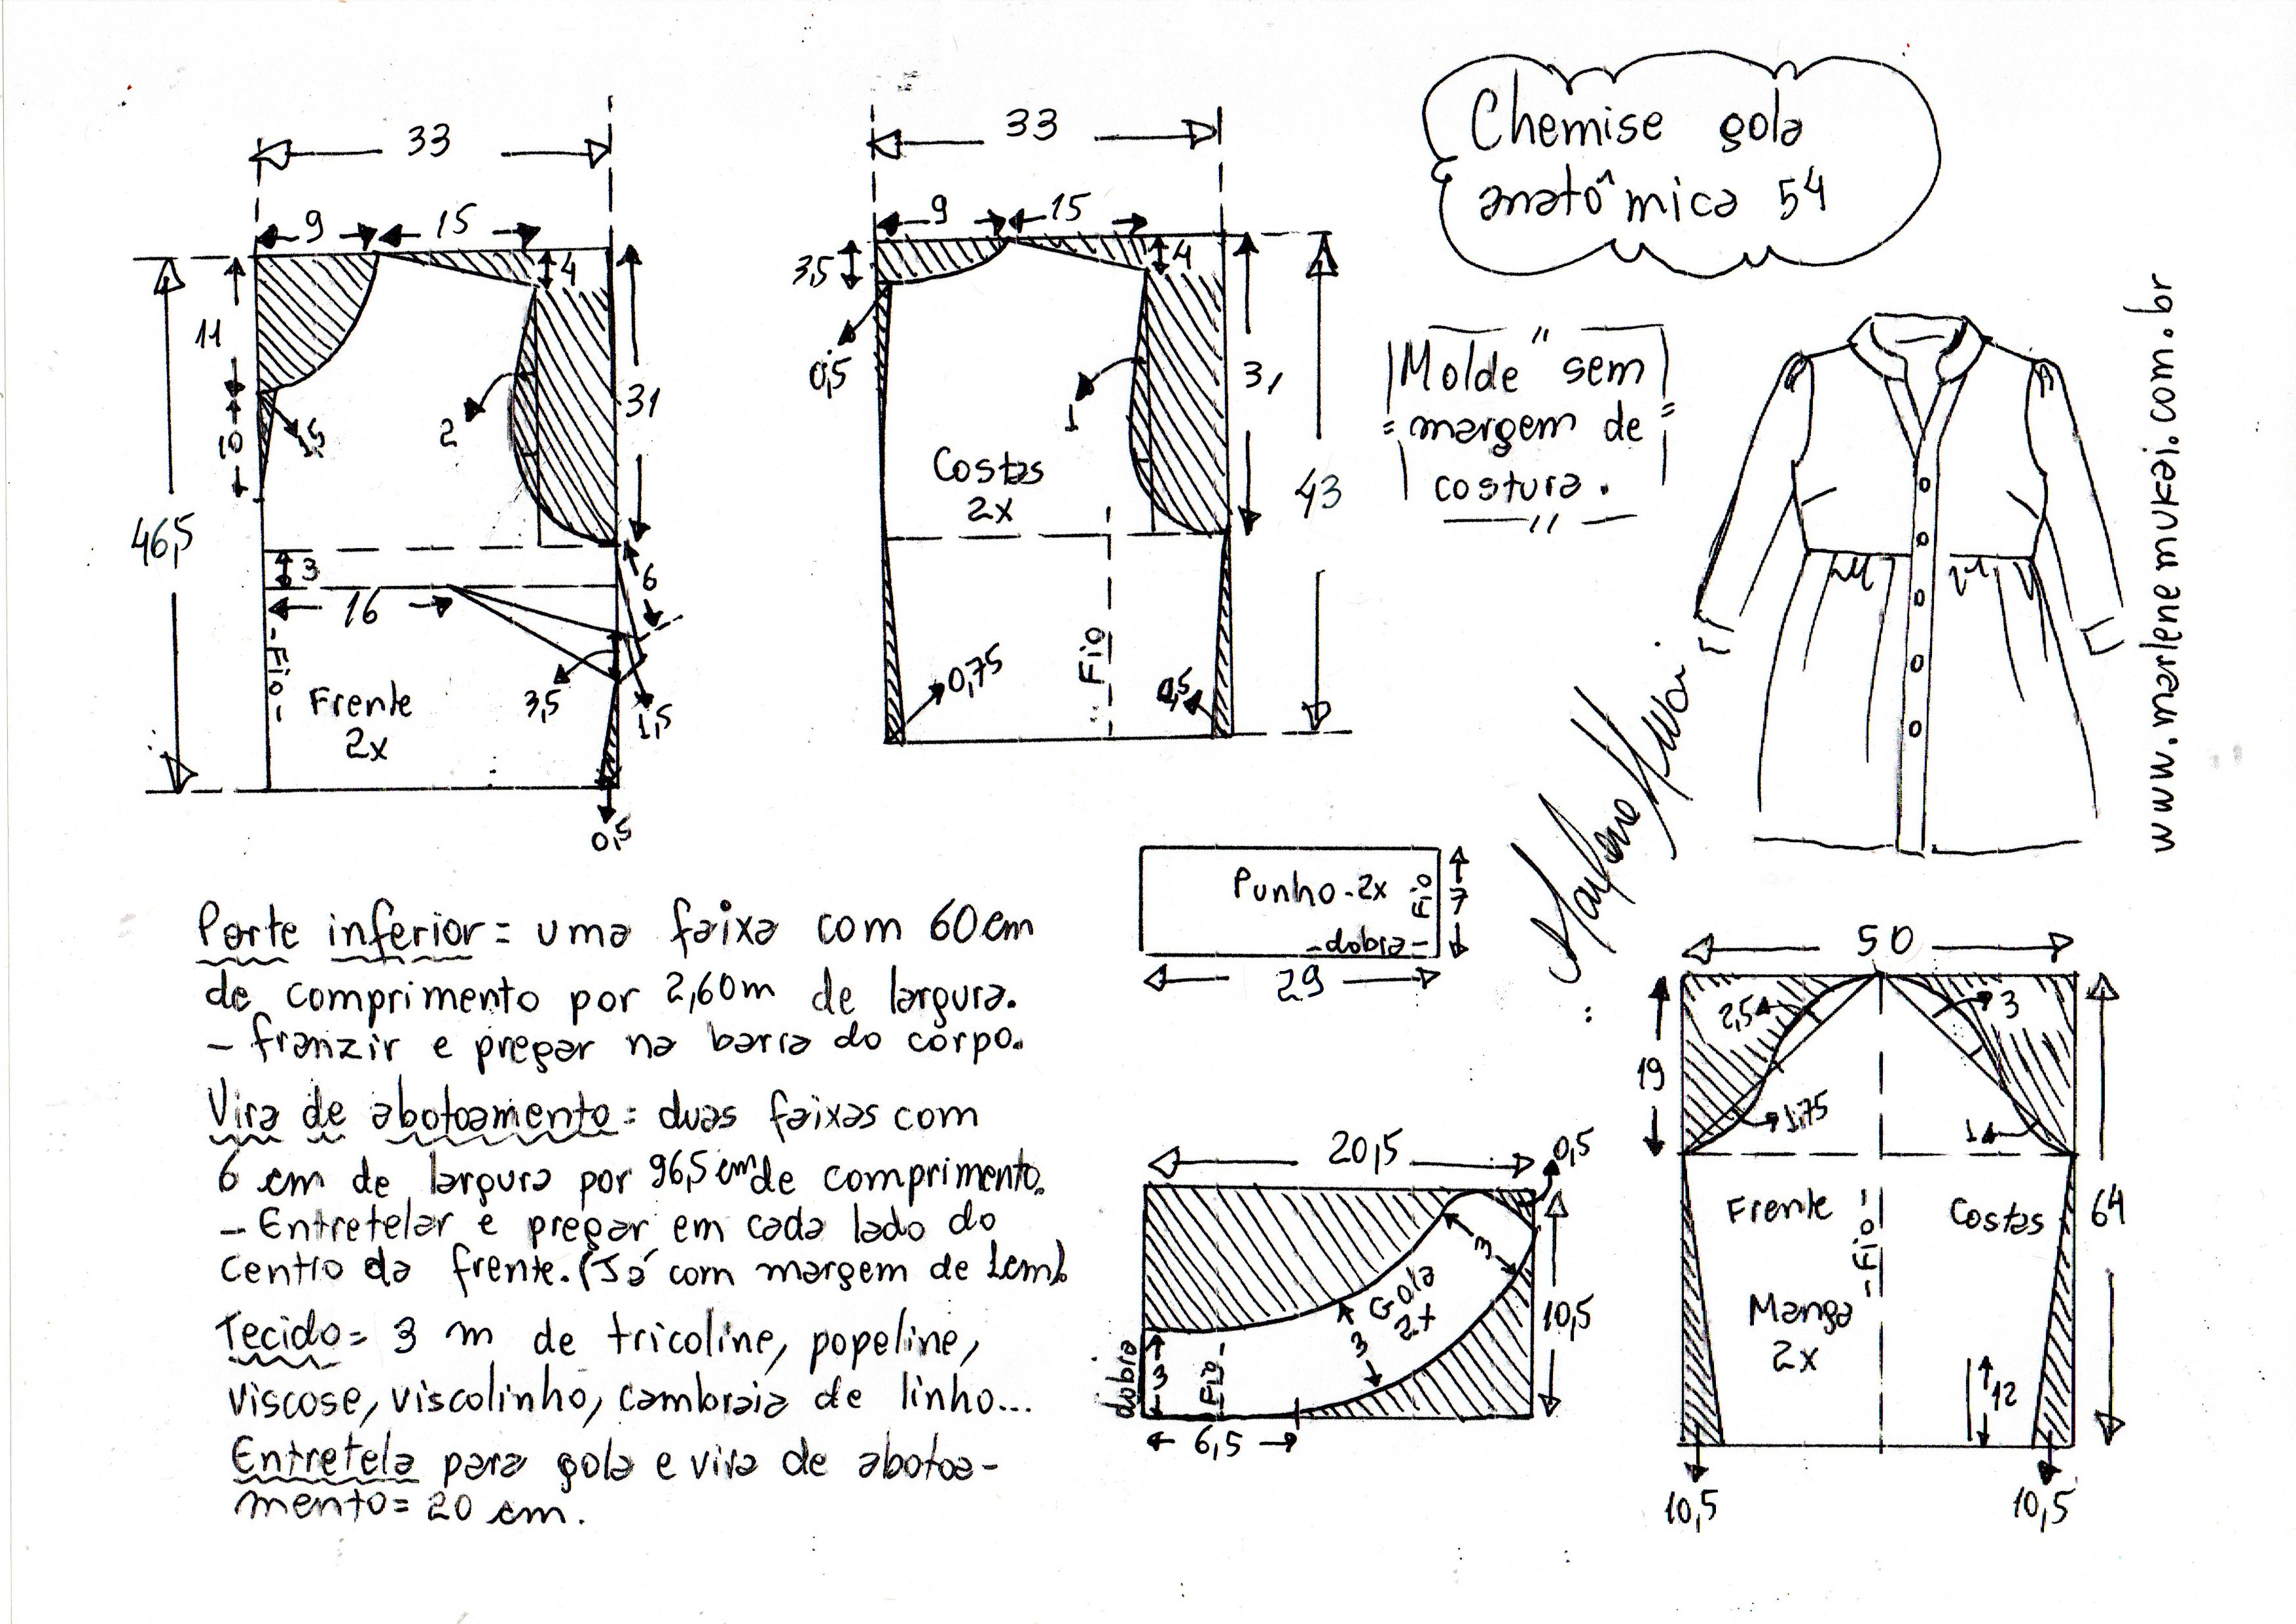 Chemise gola
anatômica 54
"Molde" sem
margem de
costura.
www.marlenemukai.com.br
Marlene Mukai
33
9
15
4
11
10
1,5
2
31
46,5
3
16
6
3,5
1,5
0,5
Fio
Frente
2x
33
9
15
3,5
4
0,5
1
31
43
Costas
2x
Fio
0,75
0,5
Punho-2x
Fio
7
-dobra-
29
50
2,5
3
19
1,75
1
Frente
Fio
Costas
64
Manga
2x
12
10,5
10,5
20,5
0,5
3
Gola
2x
3
10,5
dobra
3
Fio
6,5
Parte inferior = uma faixa com 60 cm
de comprimento por 2,60m de largura.
- franzir e pregar na barra do corpo.
Vira de abotoamento = duas faixas com
6 cm de largura por 96,5 cm de comprimento.
- Entretelar e pregar em cada lado do
centro da frente. (Já com margem de 1cm).
Tecido = 3 m de tricoline, popeline,
viscose, viscolinho, cambraia de linho...
Entretela para gola e vira de abotoa-
mento = 20 cm.